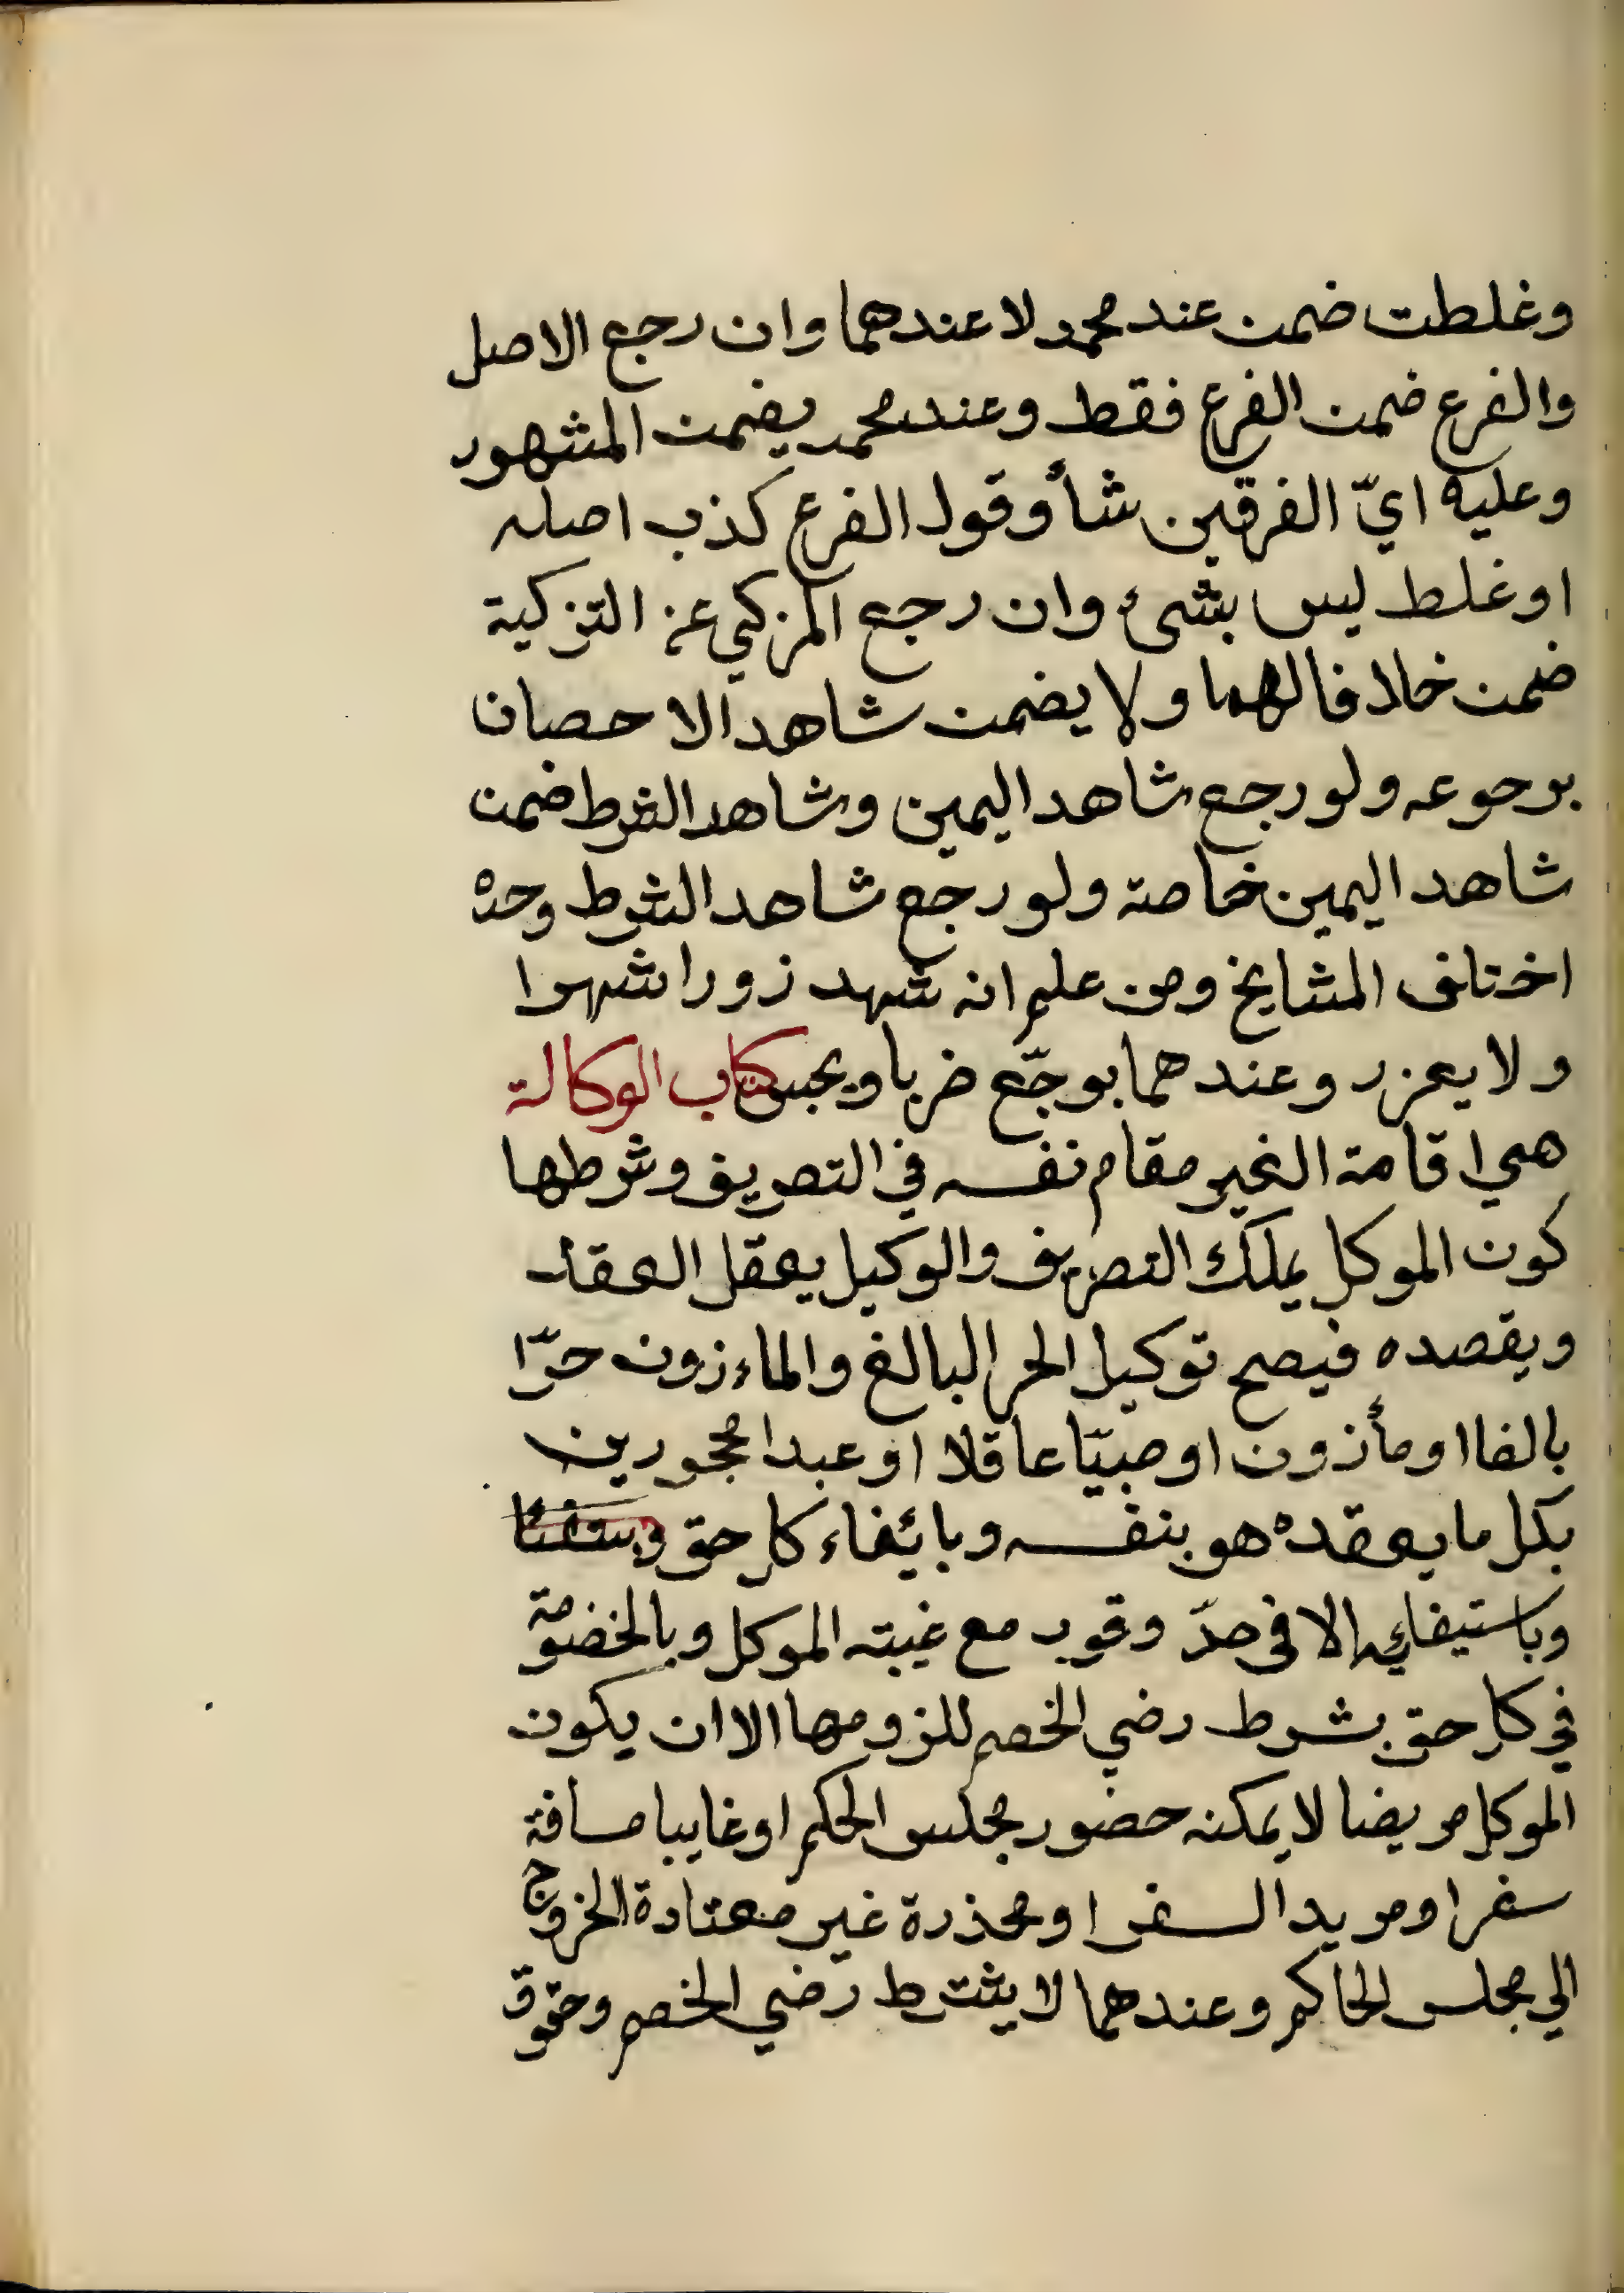 وغلطت ضمن عند محمد لا عندهما وان رجع الاصل
والفرع ضمن الفرع فقط وعند محمد يضمن المشهور
وعليه ايّ الفرقين شأ وقول الفرع كذب اصله
او غلط ليس بشئ وان رجع المزكي عن التزكية
ضمن خلافا لهما ولا يضمن شاهد الاحصان
برجوعه ولو رجع شاهد اليمين وشاهد الشرط ضمن
شاهد اليمين خاصة ولو رجع شاهد الشرط وحده
اختلف المشايخ ومن علم انه شهد زورا شهرا
ولا يعزر وعندهما يوجّع ضربا ويحبس كتاب الوكالة
هي اقامة الغير مقام نفسه في التصريف وشرطها
كون الموكل يملك التصريف والوكيل يعقل العقد
ويقصده فيصح توكيل الحر البالغ والماءزون حرّا
بالغا او مأزون او صبيّا عاقلا او عبدا محجورين
بكل ما يعقده هو بنفسه وبائفاء كل حق
وباستيفايه الا في حدّ وقود مع غيبته الموكل وبالخضومة
في كل حق بشرط رضي الخصم للزومها الا ان يكون
الموكل مريضا لا يمكنه حضور مجلس الحكم او غايبا مسافة
سفر او مريد السفر او مخذرة غير معتادة الخروج
الي مجلس الحاكم وعندهما لا يشترط رضي الخصم وحقوق